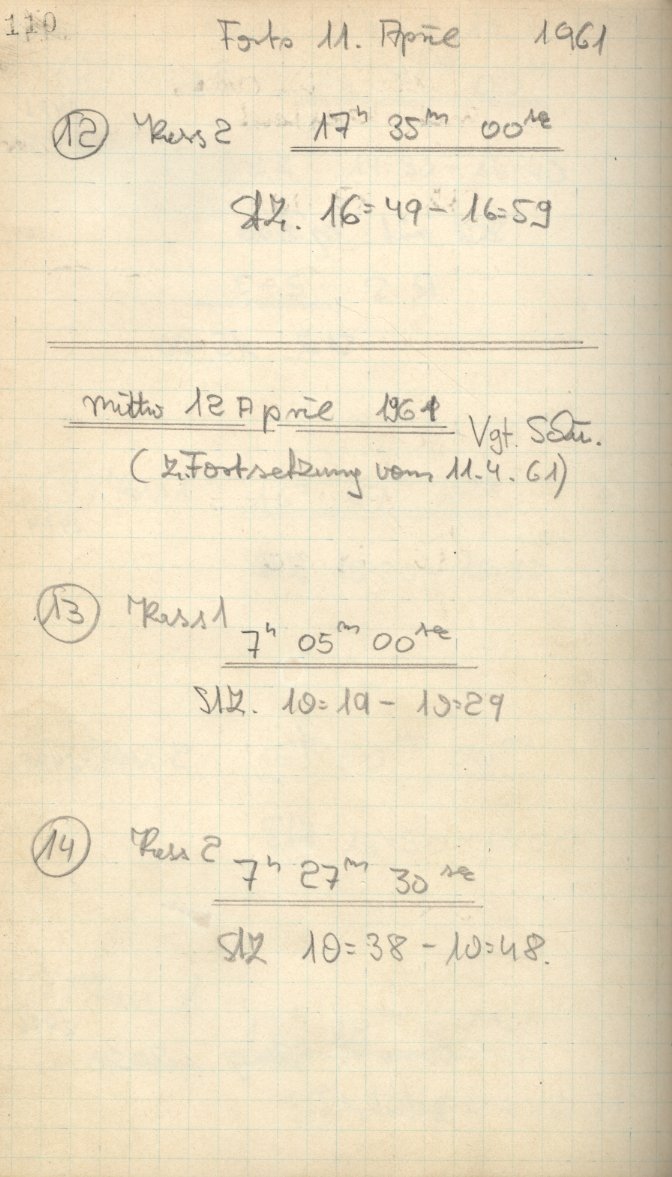 110
Forts 11. April 1961
12 Kass 2 17h 35m 00se
StZ. 16=49 - 16=59
Mittw 12 April 1961
Vgt. Schu.
(z. Fortsetzung vom 11.4.61)
13 Kass 1
7h 05m 00se
StZ. 10=19 - 10=29
14 Kass 2
7h 27m 30se
StZ 10=38 - 10=48.